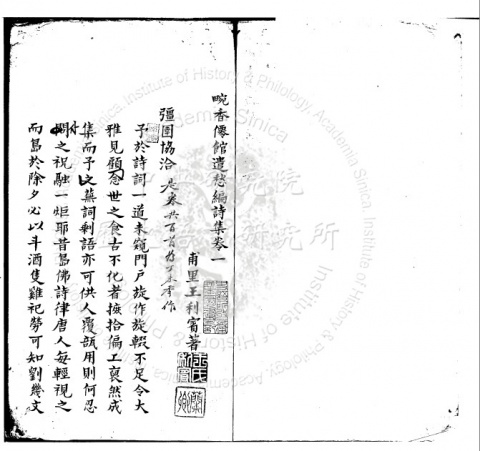 畹香僊館遣愁編詩集卷一
甫里王利賓著
彊圉協洽 是卷共百首
予於詩詞一道未窺門戶旋作旋輟不足令大
雅見顧念世之食古不化者撏拾偏工裒然成
集而予之蕪詞剩語亦可供人覆瓿用則何忍
付之祝融一炬耶昔島佛詩律唐人每輕視之
而島於除夕必以斗酒隻雞祀勞可知劉幾文
Institute of History & Philology, Academia Sinica